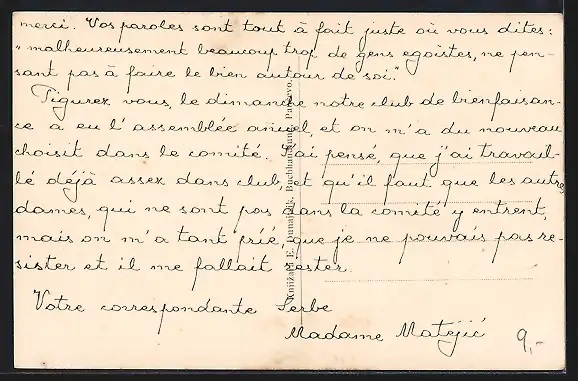 merci. Vos paroles sont tout à fait juste où vous dites:
"malheureusement beaucoup trop de gens egoïstes, ne pen-
sant pas à faire le bien autour de soi."
Figurez vous, le dimanche notre club de bienfaisan-
ce a eu l'assemblée anuel, et on m'a du nouveau
choisit dans le comité. J'ai pensé, que j'ai travail-
lé déjà assez dans club, et qu'il faut que les autres
dames, qui ne sont pas dans la comité y entrent,
mais on m'a tant prié, que je ne pouvais pas re-
sister et il me fallait rester.
Votre correspondante Serbe
Madame Matejić
9,-
Knjižara E. Buchhandlung, Pančevo.